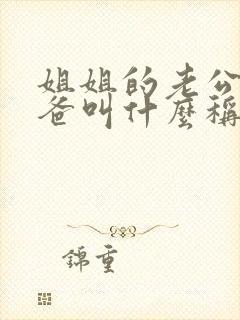 姐姐的老公
爸叫什麼稱
錦重